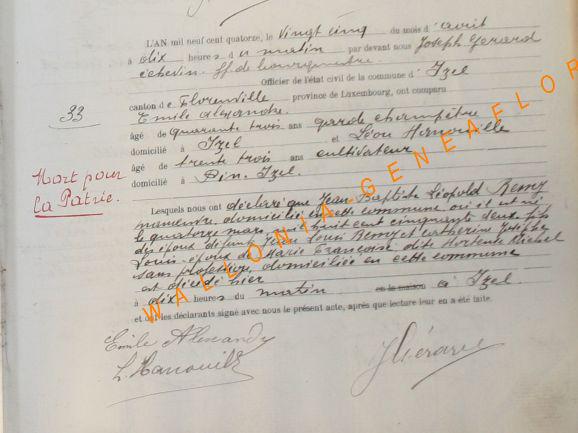 L'AN mil neuf cent quatorze, le Vingt cinq du mois d'août
à dix heures du matin par devant nous Joseph Gérard
échevin ff de bourgmestre
Officier de l'état civil de la commune d'Izel
canton de Florenville province de Luxembourg, ont comparu
Emile Alexandre
âgé de quarante trois ans garde champêtre
domicilié à Izel et Léon Hanouille
âgé de trente trois ans cultivateur
domicilié à Pin-Izel.
33
Mort pour
la Patrie.
Lesquels nous ont déclaré que Jean Baptiste Léopold Remy
manœuvre, domicilié en cette commune où il est né
le quatorze mars mil huit cent cinquante deux, fils
des époux défunts Jean Louis Remy et Catherine Josephe
Louis, époux de Marie Françoise dite Hortense Richel
sans profession, domiciliée en cette commune
est décédé hier
à dix heures du matin en la maison à Izel.
et ont les déclarants signé avec nous le présent acte, après que lecture leur en a été faite.
Emile Alexandre
L. Hanouille
J Gérard
WALLONIA GENEAFLOR